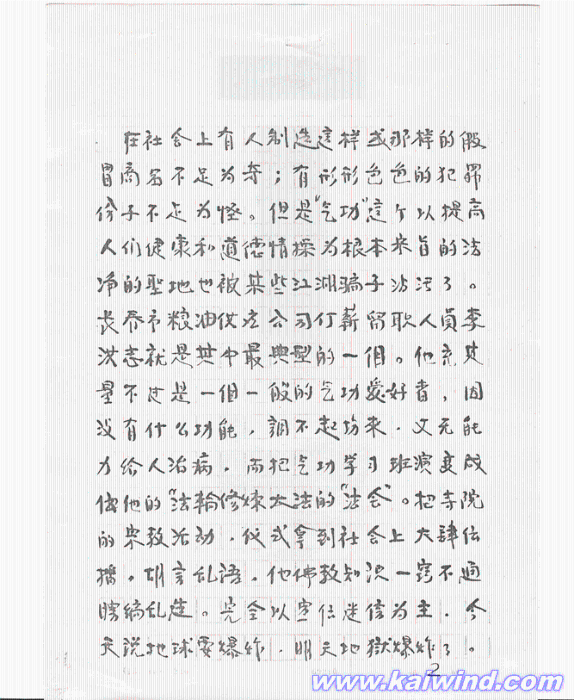 在社会上有人制造這样或那样的假
冒商名不足为奇；有形形色色的犯罪
份子不足为怪。但是“气功”這个以提高
人们健康和道德情操为根本来旨的洁
净的聖地也被某些江湖骗子沾污了。
長春市粮油供应公司仃薪留职人員李
洪志就是其中最典型的一個。他充其
量不过是一個一般的气功爱好者，因
没有什么功能，調不起塲来，又无能
力给人治病，而把气功学习班演变成
傳他的“法輪修煉大法的“法会”。把寺院
的宗教活动，仪式拿到社会上大肆伝
播，胡言乱语，他佛教知识一窍不通
瞎编乱造。完全以宣伝迷信为主，今
天说地球要爆炸，明天地獄爆炸了。
2
www.kaiwind.com